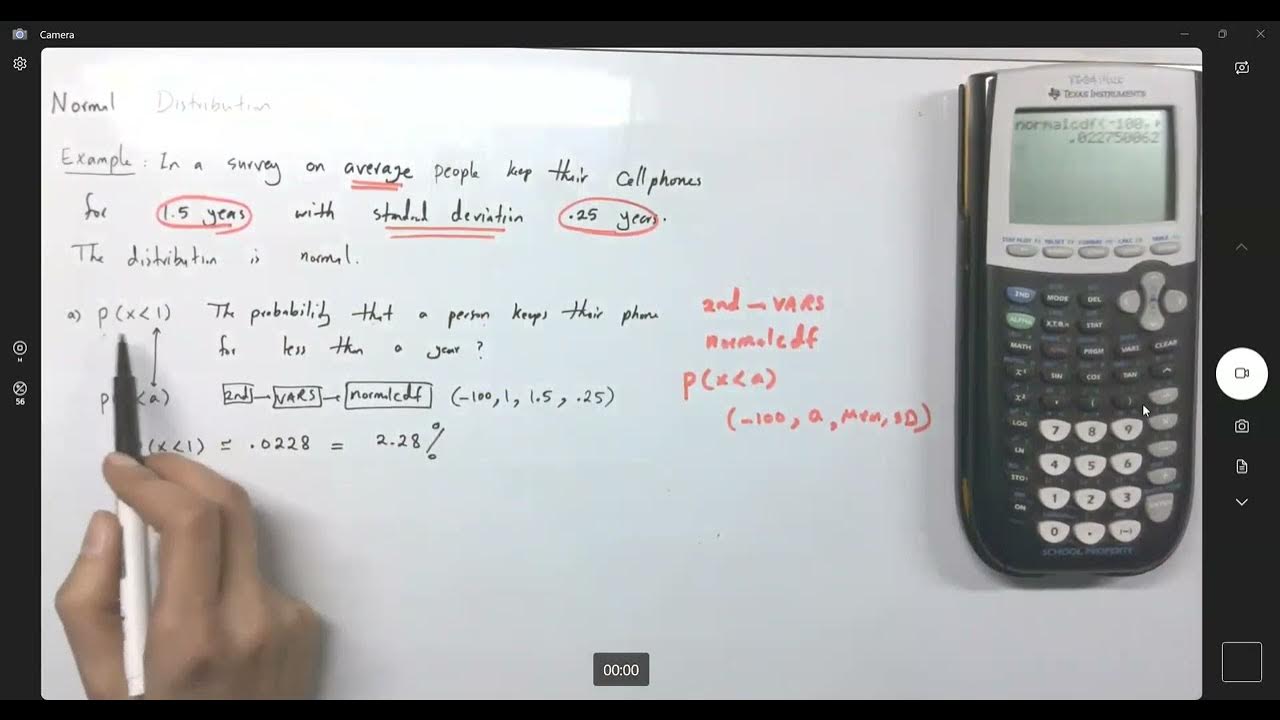 Camera
Normal Distribution
Example: In a survey on average people keep their Cellphones
for 1.5 years with standard deviation .25 years.
The distribution is normal.
a) P(x<1) The probability that a person keeps their phone
for less than a year?
P( <a) 2nd → VARS → normalcdf (-100, 1, 1.5, .25)
(x<1) ≅ .0228 = 2.28%
2nd → VARS
normalcdf
P(x<a)
(-100, a, Mean, SD)
TEXAS INSTRUMENTS
normalcdf(-100,
.022750062
2ND MODE DEL
ALPHA X,T,θ,n STAT
MATH PRGM VARS CLEAR
SIN COS TAN
LOG 7 8 9
LN 4 5 6
STO 1 2 3
ON 0 . (-)
SCHOOL PROPERTY
00:00